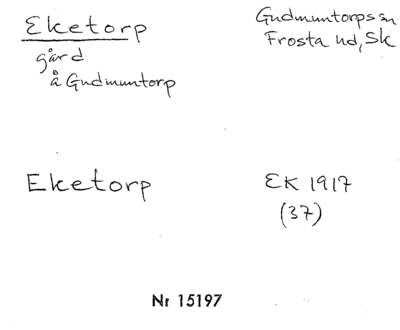 Eketorp
gård
å Gudmuntorp
Gudmuntorps sn
Frosta hd, Sk
Eketorp
EK 1917
(37)
Nr 15197